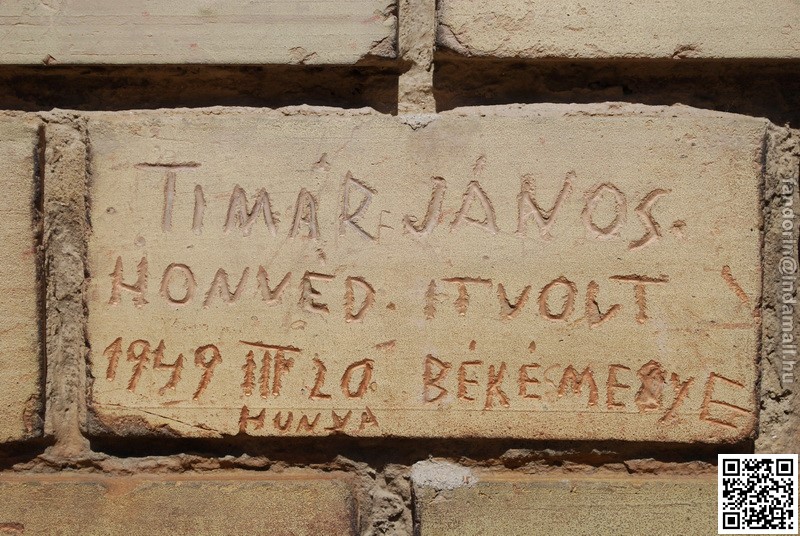 TIMÁR JÁNOS.
HONVÉD. ITVOLT
1949 III 20 BÉKÉSMEGYE
HUNYA
jandorir@indamail.hu